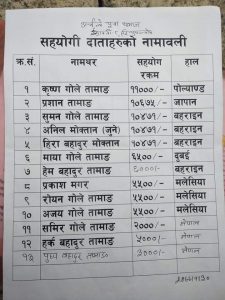 सहयोगी दाताहरुको नामावली
क्र.सं. नामथर सहयोग रकम हाल
१ कृष्ण गोले तामाङ ११०००/- पोल्याण्ड
२ प्रशान तामाङ १०६७५/- जापान
३ सुमन गोले तामाङ १०४७१/- बहराइन
४ अनिल मोक्तान (जुने) १०४७१/- बहराइन
५ हिरा बहादुर मोक्तान १०४७१/- बहराइन
६ माया गोले तामाङ ६५००/- दुबई
७ हेम बहादुर तामाङ ६०००/- बहराइन
८ प्रकाश मगर ५५००/- मलेसिया
९ रोयन गोले तामाङ ५५००/- मलेसिया
१० अजय गोले तामाङ ५५००/- मलेसिया
११ समिर गोले तामाङ २०००/- नेपाल
१२ हर्क बहादुर तामाङ ५०००/- नेपाल
१३ बहादुर तामाङ ३०००/- नेपाल